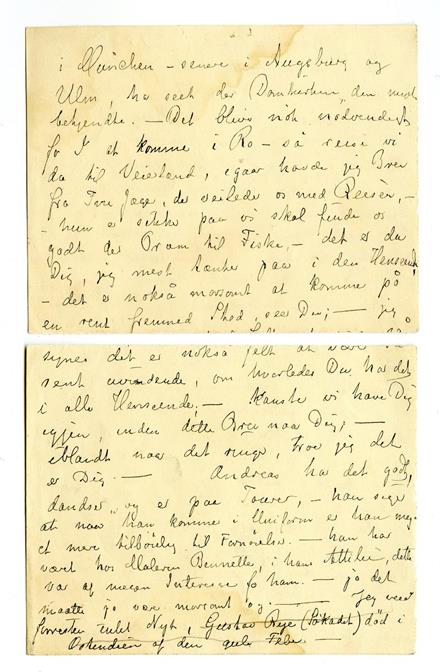 i München – senere i Augsburg og
Ulm, har seet der Domkirken, den mest
bekjendte. – Det bliver nok nødvendigt
for I at komme i Ro – så reise vi
da til Veierland, igaar havde jeg Brev
fra Fru Jørg, de veilede os med Reisen, –
– hun er sikker paa vi skal finde os
godt der Pram til Fiske, – det er da
Dig, jeg mest tænker paa i den Henseende,
– det er nokså morsomt at komme på
en rent fremmed Sted, seer Du; – jeg
synes det er nokså fælt at være
sent uvidende, om hvorledes Du har det
i alle Henseende, – Kanske vi have Dig
igjen, inden dette Brev naar Dig; –
iblandt naar det ringe, troer jeg det
er Dig – Andreas har det godt,
dandser og er paa Tourer, – han siger
at naar han kommer i Uniform er han meg-
et mer tilbøielig til Fornøielse. – han har
vært hos Maleren Bennetter, i hans Attelier, dette
var af megen Interesse for ham. – jo det
maatte jo være morsomt og. – Jeg veed
forresten intet Nyt, Gustav (Søkadet) død i
Ostindien af den gule Feber –